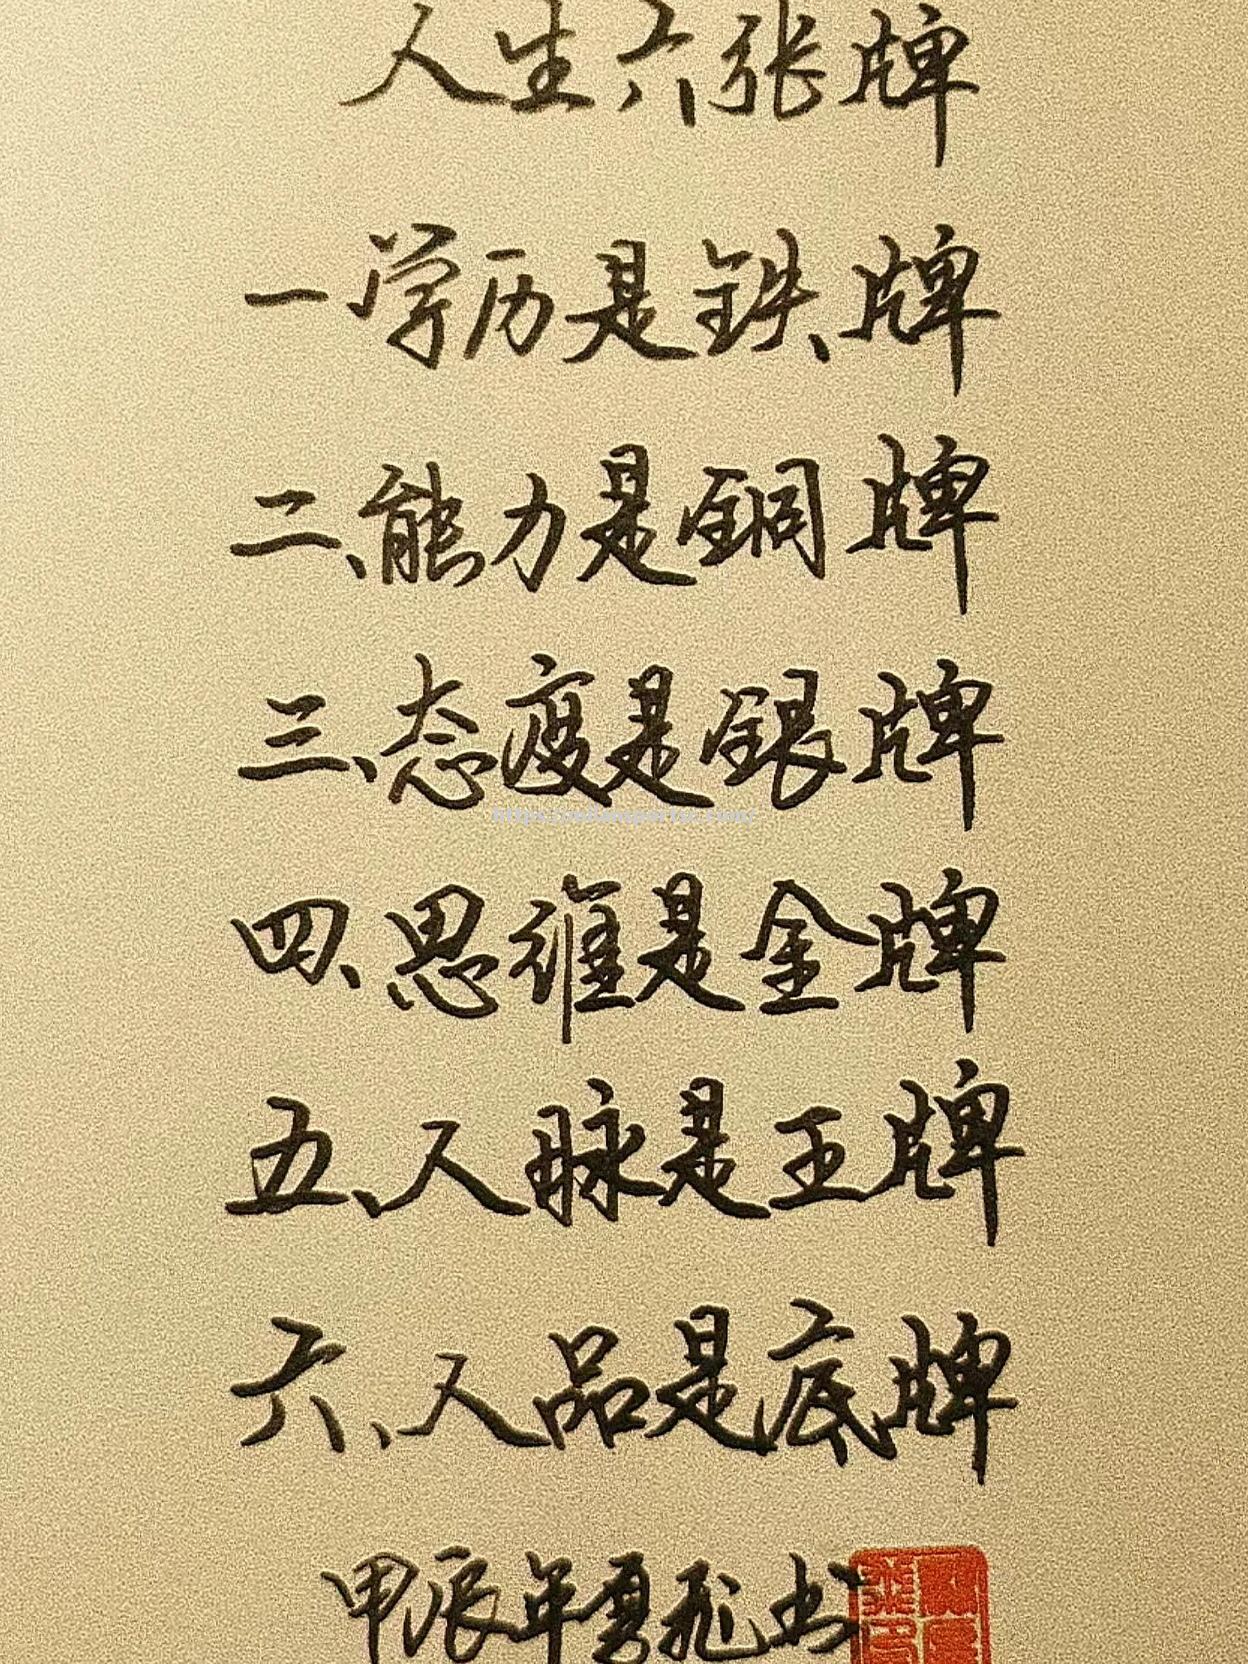 人生六张牌
一、学历是铁牌
二、能力是铜牌
三、态度是银牌
四、思维是金牌
五、人脉是王牌
六、人品是底牌
甲辰年勇飞书